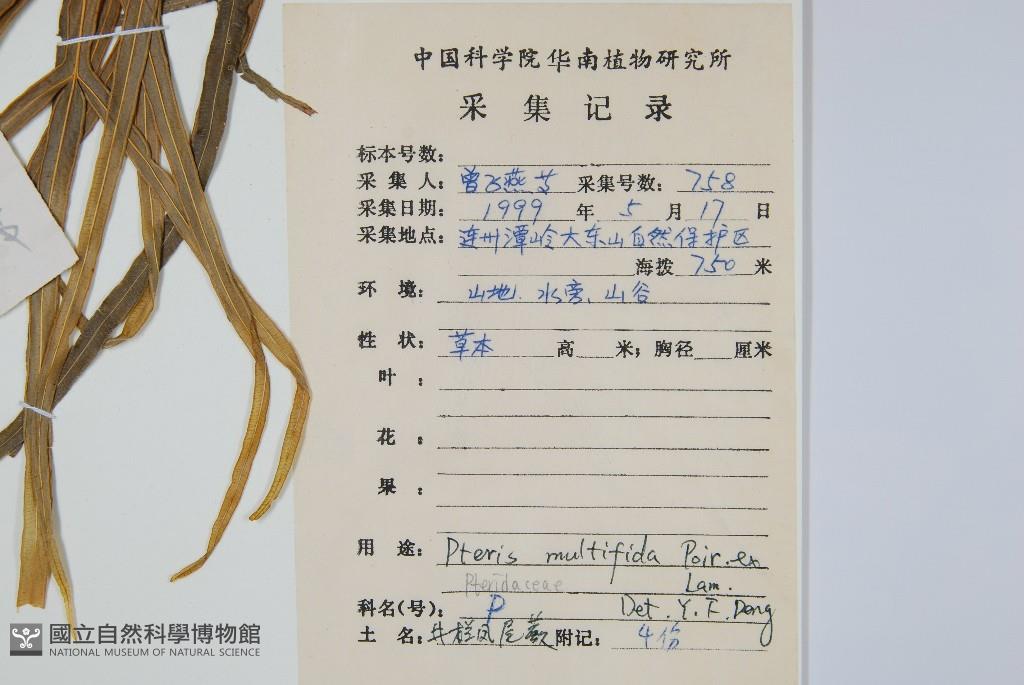 中国科学院华南植物研究所
采集记录
标本号数:
采集人: 曾飞燕等 采集号数: 758
采集日期: 1999 年 5 月 17 日
采集地点: 连州潭岭大东山自然保护区
海拨 750 米
环境: 山地.水旁、山谷
性状: 草本 高 米; 胸径 厘米
叶:
花:
果:
用途: Pteris multifida Poir. ex
Pteridaceae Lam.
科名(号): P Det. Y. F. Deng
土名: 井栏凤尾蕨 附记: 4份
國立自然科學博物館
NATIONAL MUSEUM OF NATURAL SCIENCE